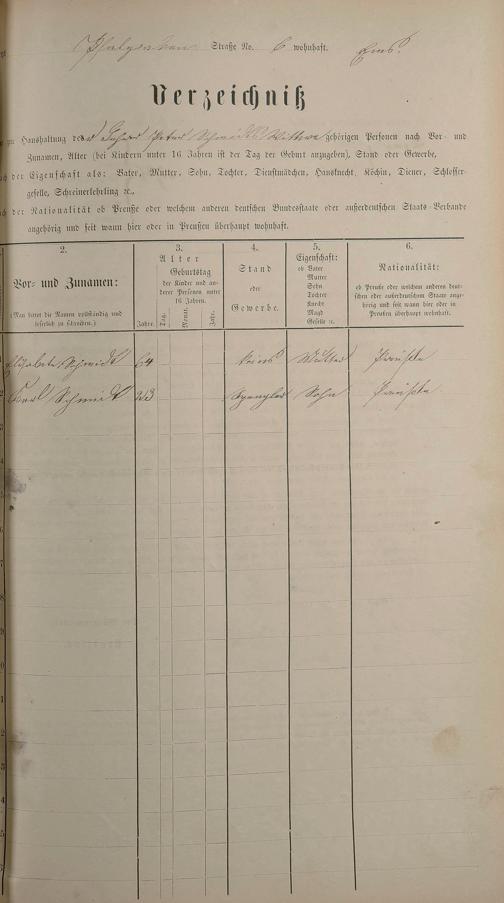 Pfahlgraben Straße No. 6 wohnhaft. Ems.
Verzeichniß
zur Haushaltung der Johann Peter Schmidt Wittwe gehörigen Personen nach Vor- und
Zunamen, Alter (bei Kindern unter 16 Jahren ist der Tag der Geburt anzugeben), Stand oder Gewerbe,
nach der Eigenschaft als: Vater, Mutter, Sohn, Tochter, Dienstmädchen, Hausknecht, Köchin, Diener, Schlosser-
geselle, Schreinerlehrling ꝛc.,
nach der Nationalität ob Preuße oder welchem anderen deutschen Bundesstaate oder außerdeutschen Staats-Verbande
angehörig und seit wann hier oder in Preußen überhaupt wohnhaft.
2.
Vor- und Zunamen:
(Man bittet die Namen vollständig und
leserlich zu schreiben.)
3.
Alter
Geburtstag
der Kinder und an-
derer Personen unter
16 Jahren.
Jahre.
Tag.
Monat.
Jahr.
4.
Stand
oder
Gewerbe.
5.
Eigenschaft:
ob Vater
Mutter
Sohn
Tochter
Knecht
Magd
Geselle ꝛc.
6.
Nationalität:
ob Preuße oder welchem anderen deut-
schen oder außerdeutschen Staate ange-
hörig und seit wann hier oder in
Preußen überhaupt wohnhaft.
1 Elisabeta Schmidt 64 keins Mutter
2 Karl Schmidt 23 Spengler Sohn